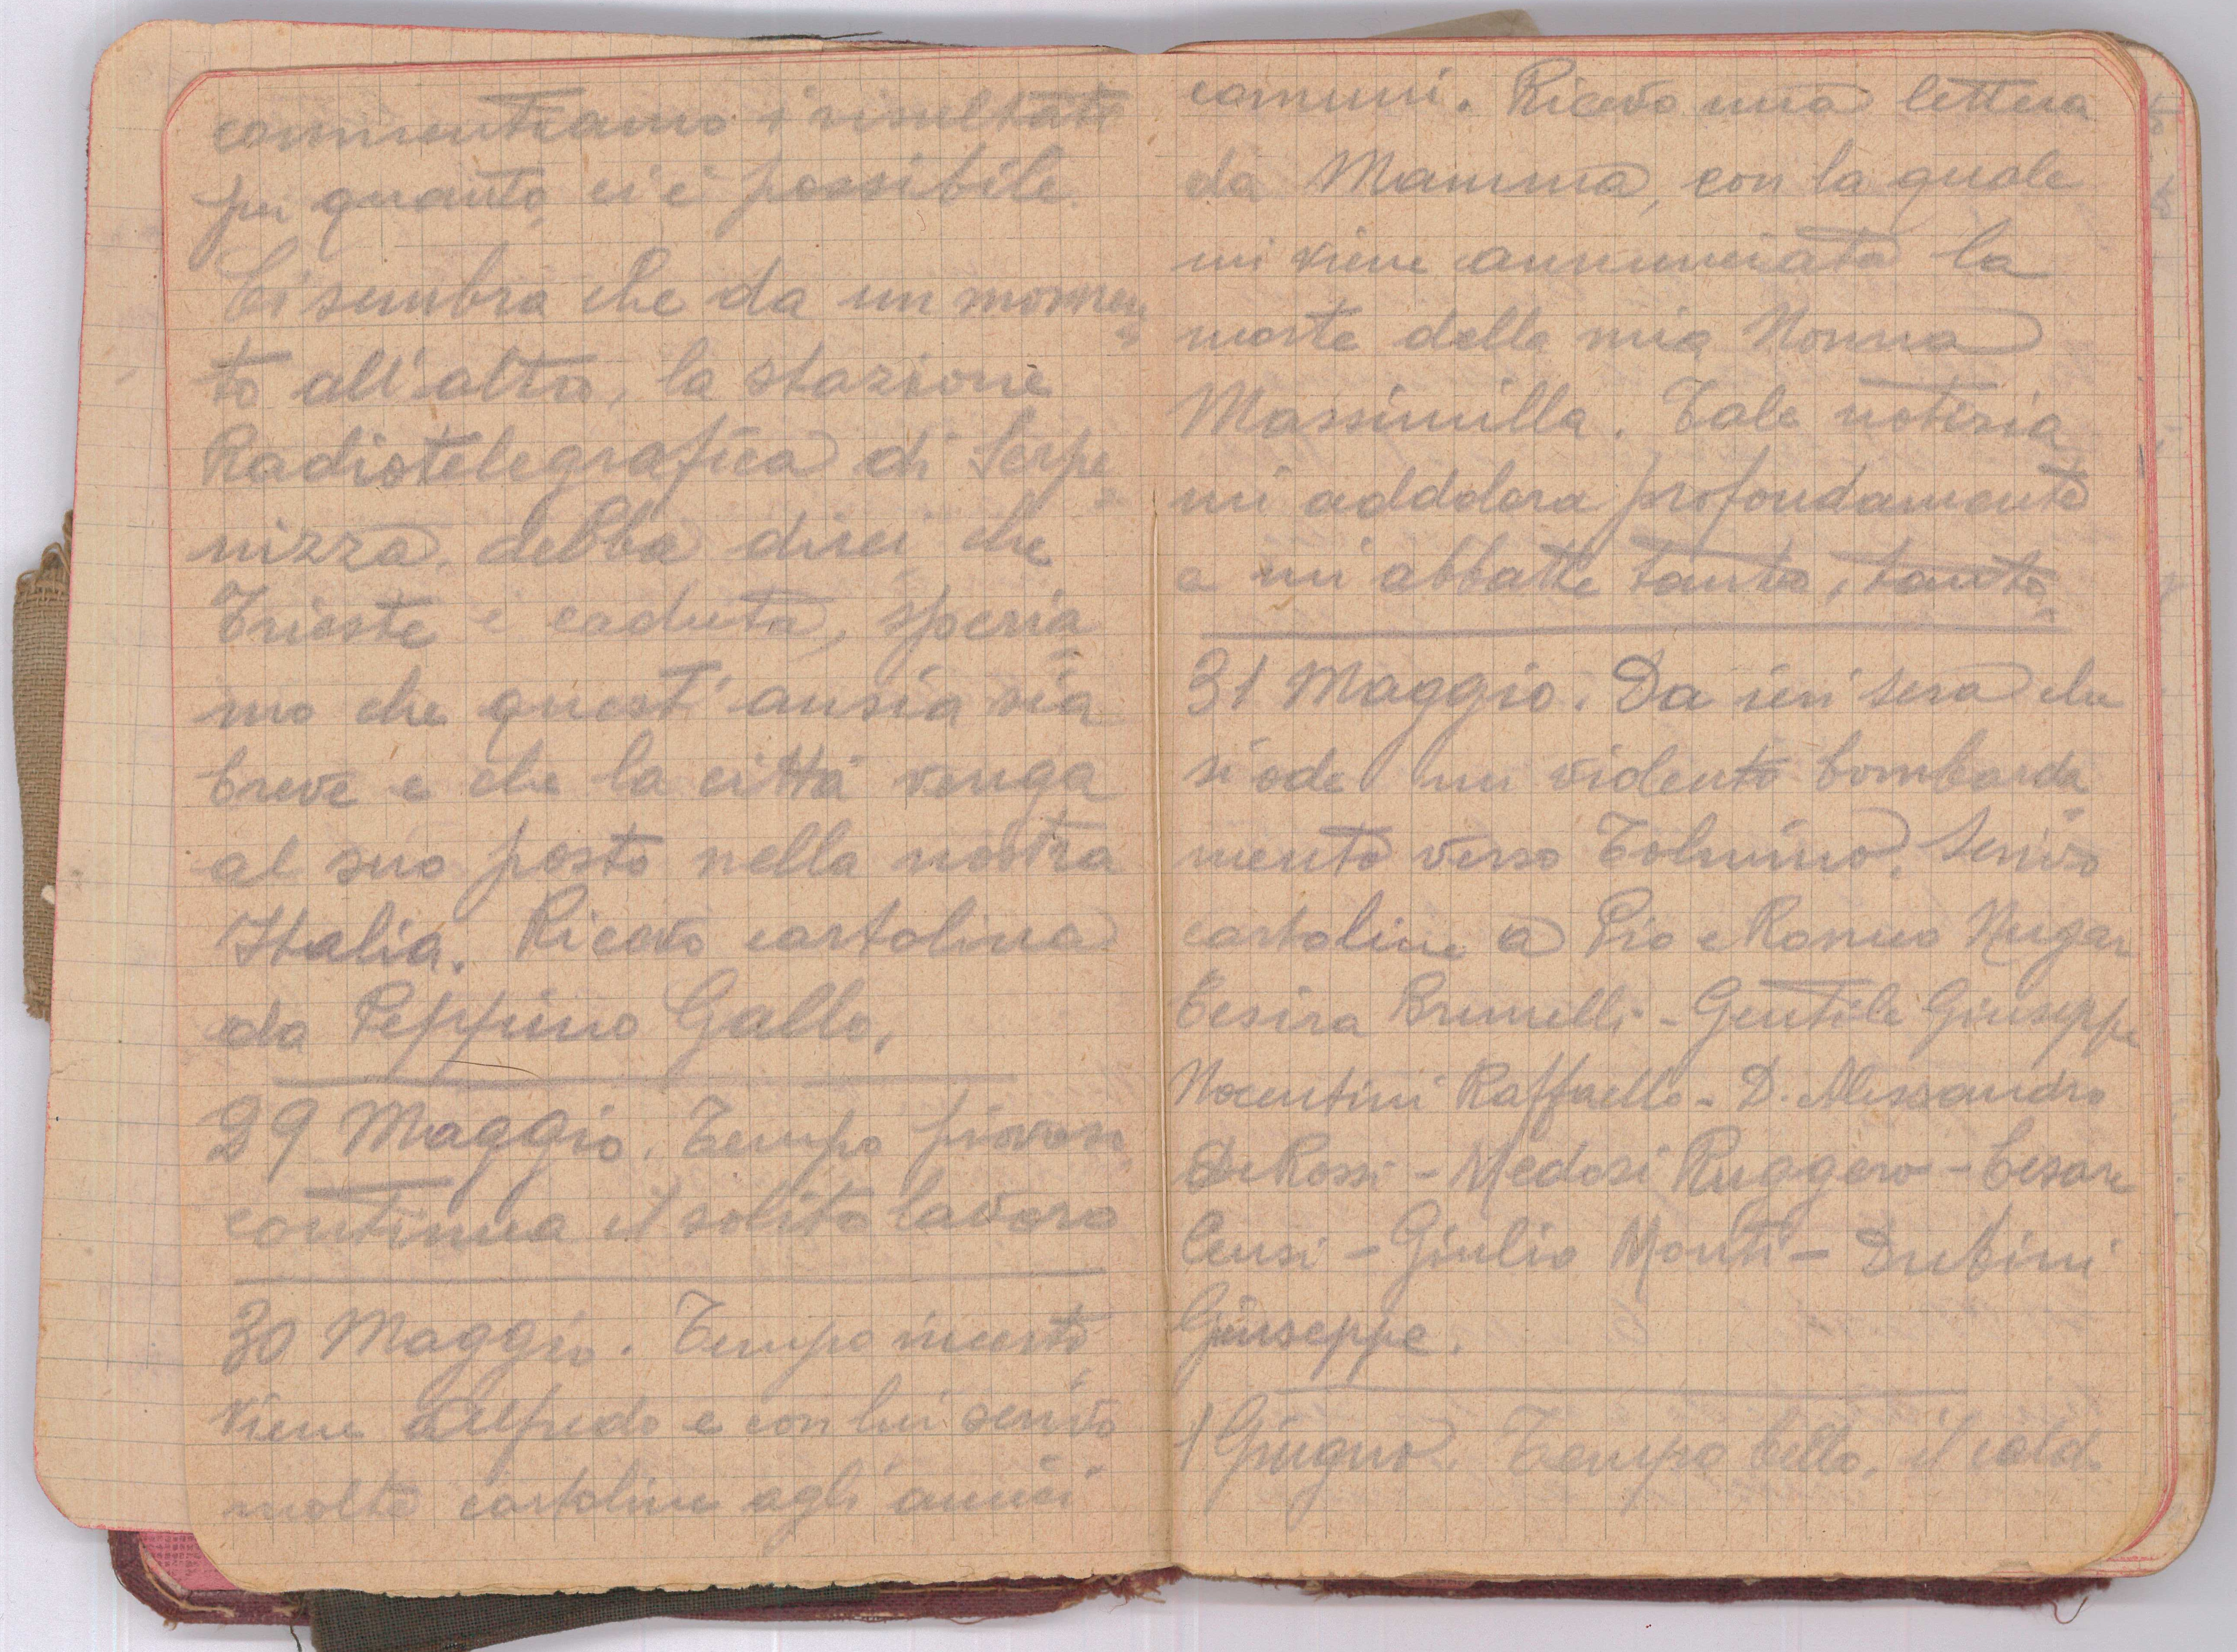 commentiamo i risultati
per quanto ci è possibile.
Ci sembra che da un momen
to all'altro, la stazione
Radiotelegrafica di Serpe
nizza, debba dirci che
Trieste è caduta, speria
mo che quest'ansia sia
breve e che la città venga
al suo posto nella nostra
Italia. Ricevo cartolina
da Peppino Gallo.
29 Maggio. Tempo piovoso
continua il solito lavoro
30 Maggio. Tempo incerto
viene Alfredo e con lui scrivo
molte cartoline agli amici
comuni. Ricevo una lettera
da Mamma, con la quale
mi viene annunciata la
morte della mia Nonna
Massimilla. Tale notizia
mi addolora profondamente
e mi abbatte tanto, tanto.
31 Maggio. Da ieri sera che
si ode un violento bombarda
mento verso Tolmino. Scrivo
cartoline a Pio e Romeo
Cesira Brunelli - Gentile Giuseppe
Nocentini Raffaello - D. Alessandro
De Rossi - Medosi Ruggero - Cesare
Censi - Giulio Monti - Dubini
Giuseppe.
1 Giugno. Tempo bello, il caldo